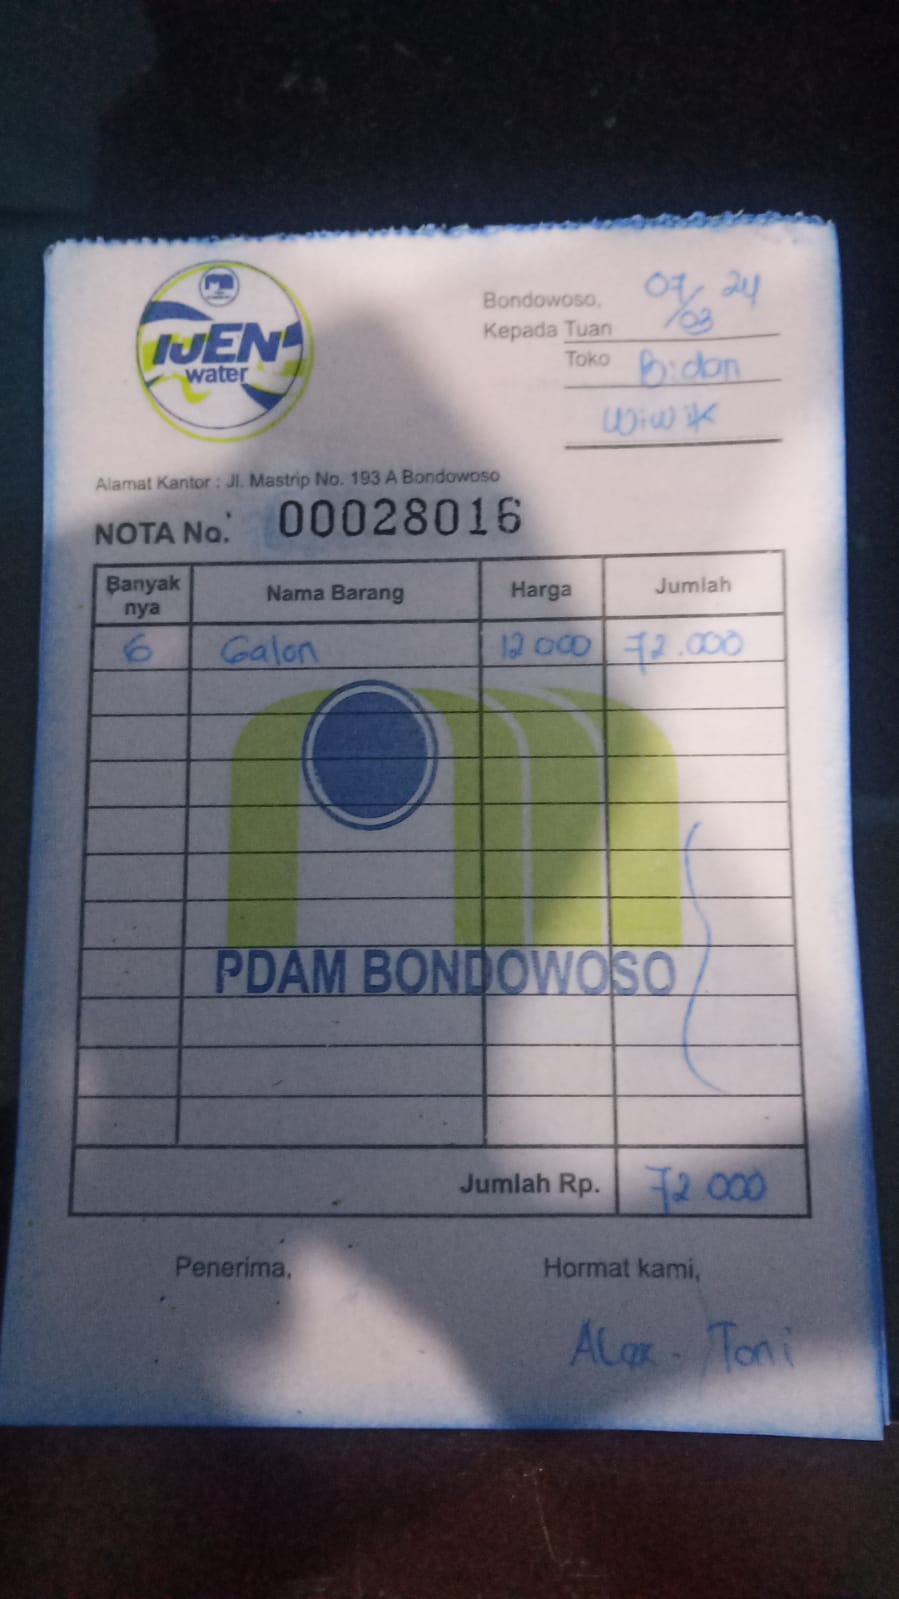 IJEN
water
Bondowoso, 07/03 24
Kepada Tuan
Toko Bidan
Wiwik
Alamat Kantor : Jl. Mastrip No. 193 A Bondowoso
NOTA No. 00028016
Banyak nya Nama Barang Harga Jumlah
6 Galon 12000 72.000
PDAM BONDOWOSO
Jumlah Rp. 72.000
Penerima, Hormat kami,
Alex - Toni